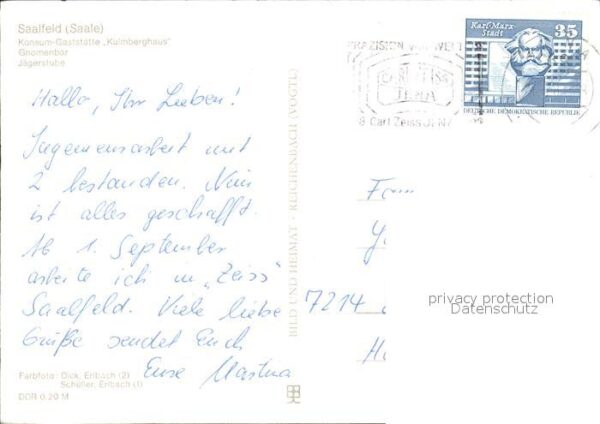 Saalfeld (Saale)
Konsum-Gaststätte „Kulmberghaus"
Gnomenbar
Jägerstube
Hallo, Ihr Lieben!
Ingenieursarbeit mit
2 bestanden. Nun
ist alles geschafft.
Ab 1. September
arbeite ich in „Zeiss"
Saalfeld. Viele liebe
Grüße sendet Euch
Eure Martina
Farbfoto: Dick, Erlbach (2)
Schüller, Erlbach (1)
DDR 0,20 M
BILD UND HEIMAT · REICHENBACH (VOGTL)
PRÄZISION WELT
CARL ZEISS
JENA
8 Carl Zeiss JENA
Karl-Marx-
Stadt
35
DEUTSCHE DEMOKRATISCHE REPUBLIK
7214
privacy protection
Datenschutz